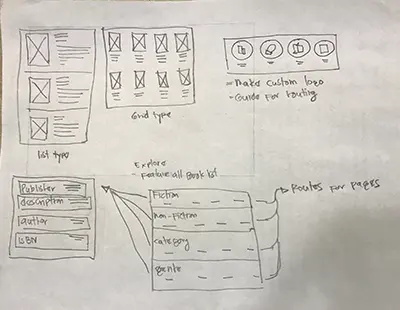 list type
Grid type
- Make custom logo
- Guide for routing
Explore
- Feature all Book list
Publisher
description
author
ISBN
Fiction
non-Fiction
category
Genre
Routes for pages